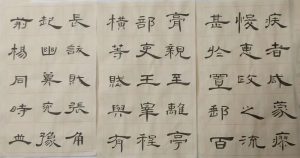 疾者咸蒙瘳
悛惠政之流
甚於置郵百
膏親至離亭
部吏王皋程
橫等賦與有
長訞賊張角
起幽冀兗豫
荊楊同時並